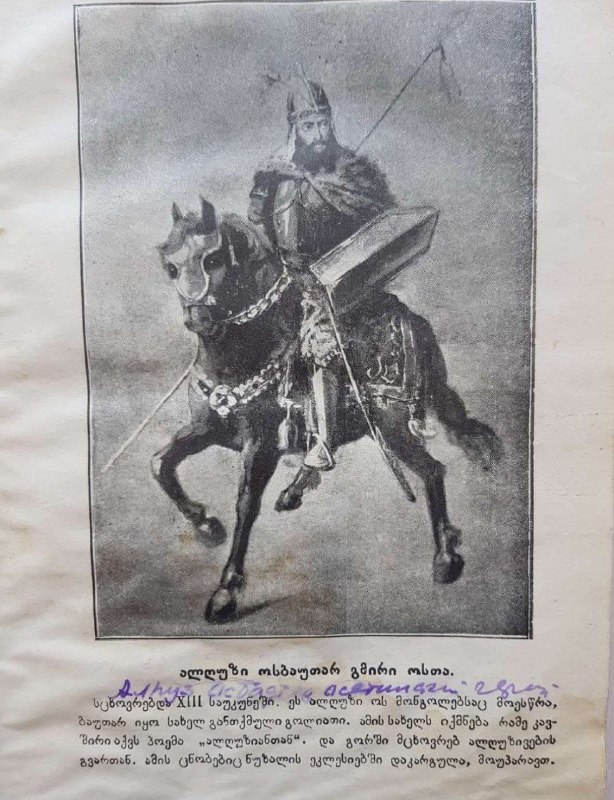 ალღუზი ოსბაუთარ გმირი ოსთა.
სცხოვრებდა XIII საუკუნეში. ეს ალღუზი ოს მონგოლებსაც მოესწრა,
ბაუთარ იყო სახელ განთქმული გოლიათი. ამის სახელს იქმნება რამე კავ-
შირი აქვს პოემა „ალღუზიანთან“. და გორში მცხოვრებ ალღუზივების
გვართან. ამის ცნობებიც ნუზალის ეკლესიებში დაკარგულა, მოუპარავთ.